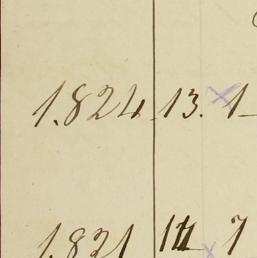 1.824 13. 1
1.821 7